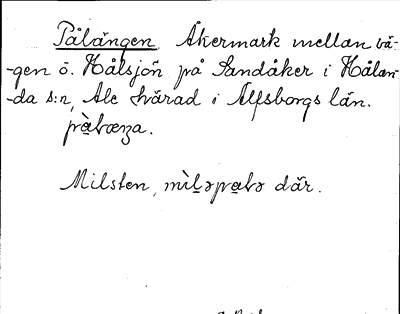 Pålängen Åkermark mellan vä-
-gen ö. Hålsjön på Sandåker i Hålan-
-da s:n, Ale härad i Älfsborgs län.
Milsten, där.